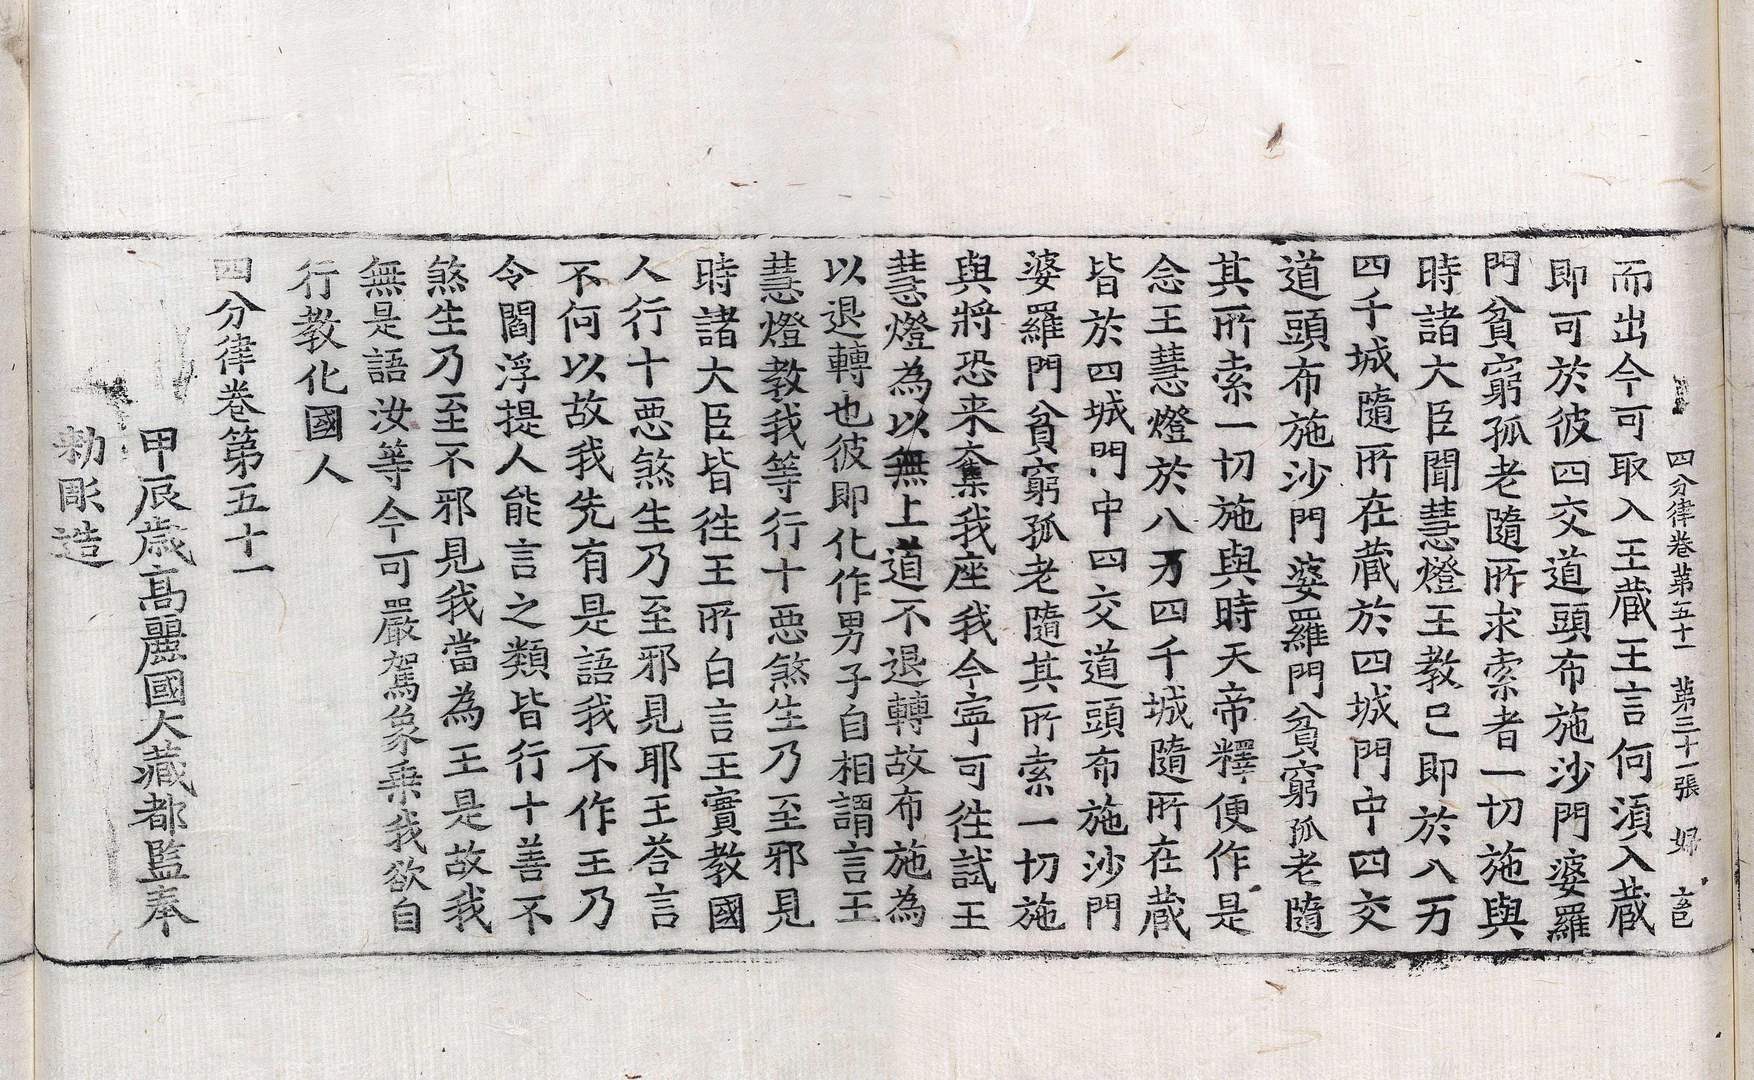 四分律卷第五十一 第三十一張 婦
而出今可取入王藏王言何須入藏
即可於彼四交道頭布施沙門婆羅
門貧窮孤老隨所求索者一切施與
時諸大臣聞慧燈王教已即於八万
四千城隨所在藏於四城門中四交
道頭布施沙門婆羅門貧窮孤老隨
其所索一切施與時天帝釋便作是
念王慧燈於八万四千城隨所在藏
皆於四城門中四交道頭布施沙門
婆羅門貧窮孤老隨其所索一切施
與將恐来奪我座我今寧可往試王
慧燈為以無上道不退轉故布施為
以退轉也彼即化作男子自相謂言王
慧燈教我等行十惡煞生乃至邪見
時諸大臣皆往王所白言王實教國
人行十惡煞生乃至邪見耶王荅言
不何以故我先有是語我不作王乃
令閻浮提人能言之類皆行十善不
煞生乃至不邪見我當為王是故我
無是語汝等今可嚴駕象乗我欲自
行教化國人
四分律卷第五十一
甲辰歳高麗國大藏都監奉
勅彫造